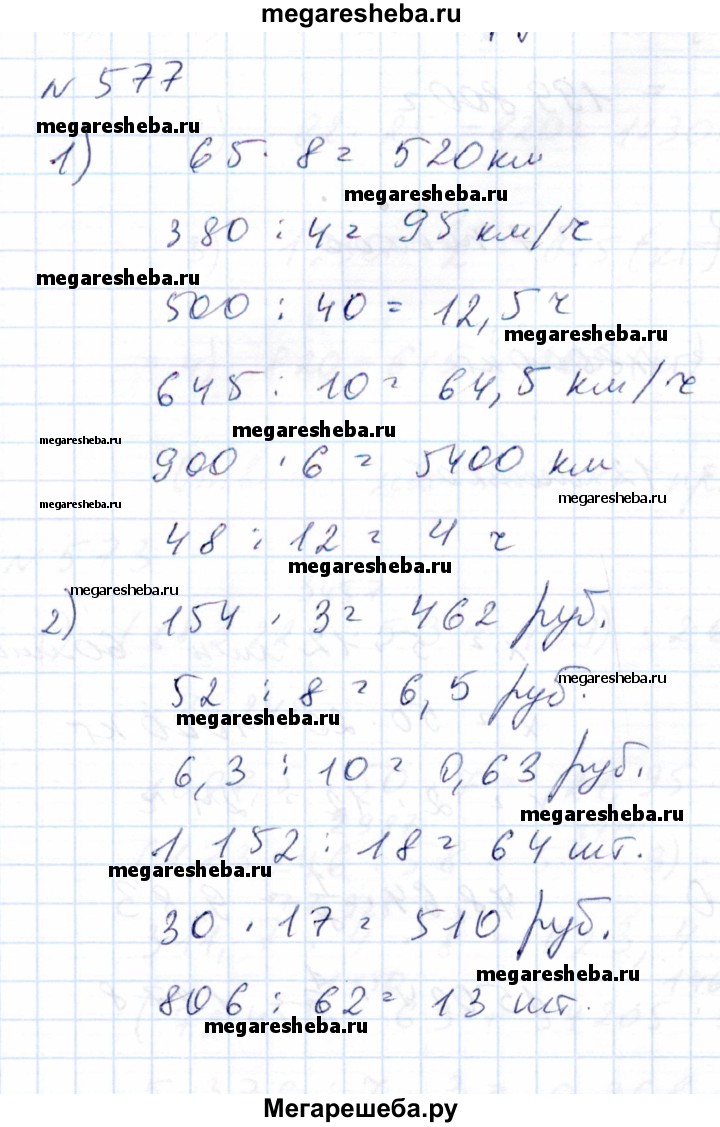 megaresheba.ru
N 577
megaresheba.ru
1) 65 · 8 = 520 км
megaresheba.ru
380 : 4 = 95 км/ч
megaresheba.ru
500 : 40 = 12,5 ч
megaresheba.ru
645 : 10 = 64,5 км/ч
megaresheba.ru
megaresheba.ru
900 · 6 = 5400 км
megaresheba.ru
megaresheba.ru
48 : 12 = 4 ч
megaresheba.ru
megaresheba.ru
2) 154 · 3 = 462 руб.
megaresheba.ru
52 : 8 = 6,5 руб.
megaresheba.ru
6,3 : 10 = 0,63 руб.
megaresheba.ru
1 152 : 18 = 64 шт.
megaresheba.ru
30 · 17 = 510 руб.
megaresheba.ru
806 : 62 = 13 шт.
megaresheba.ru
Мегарешеба.ру